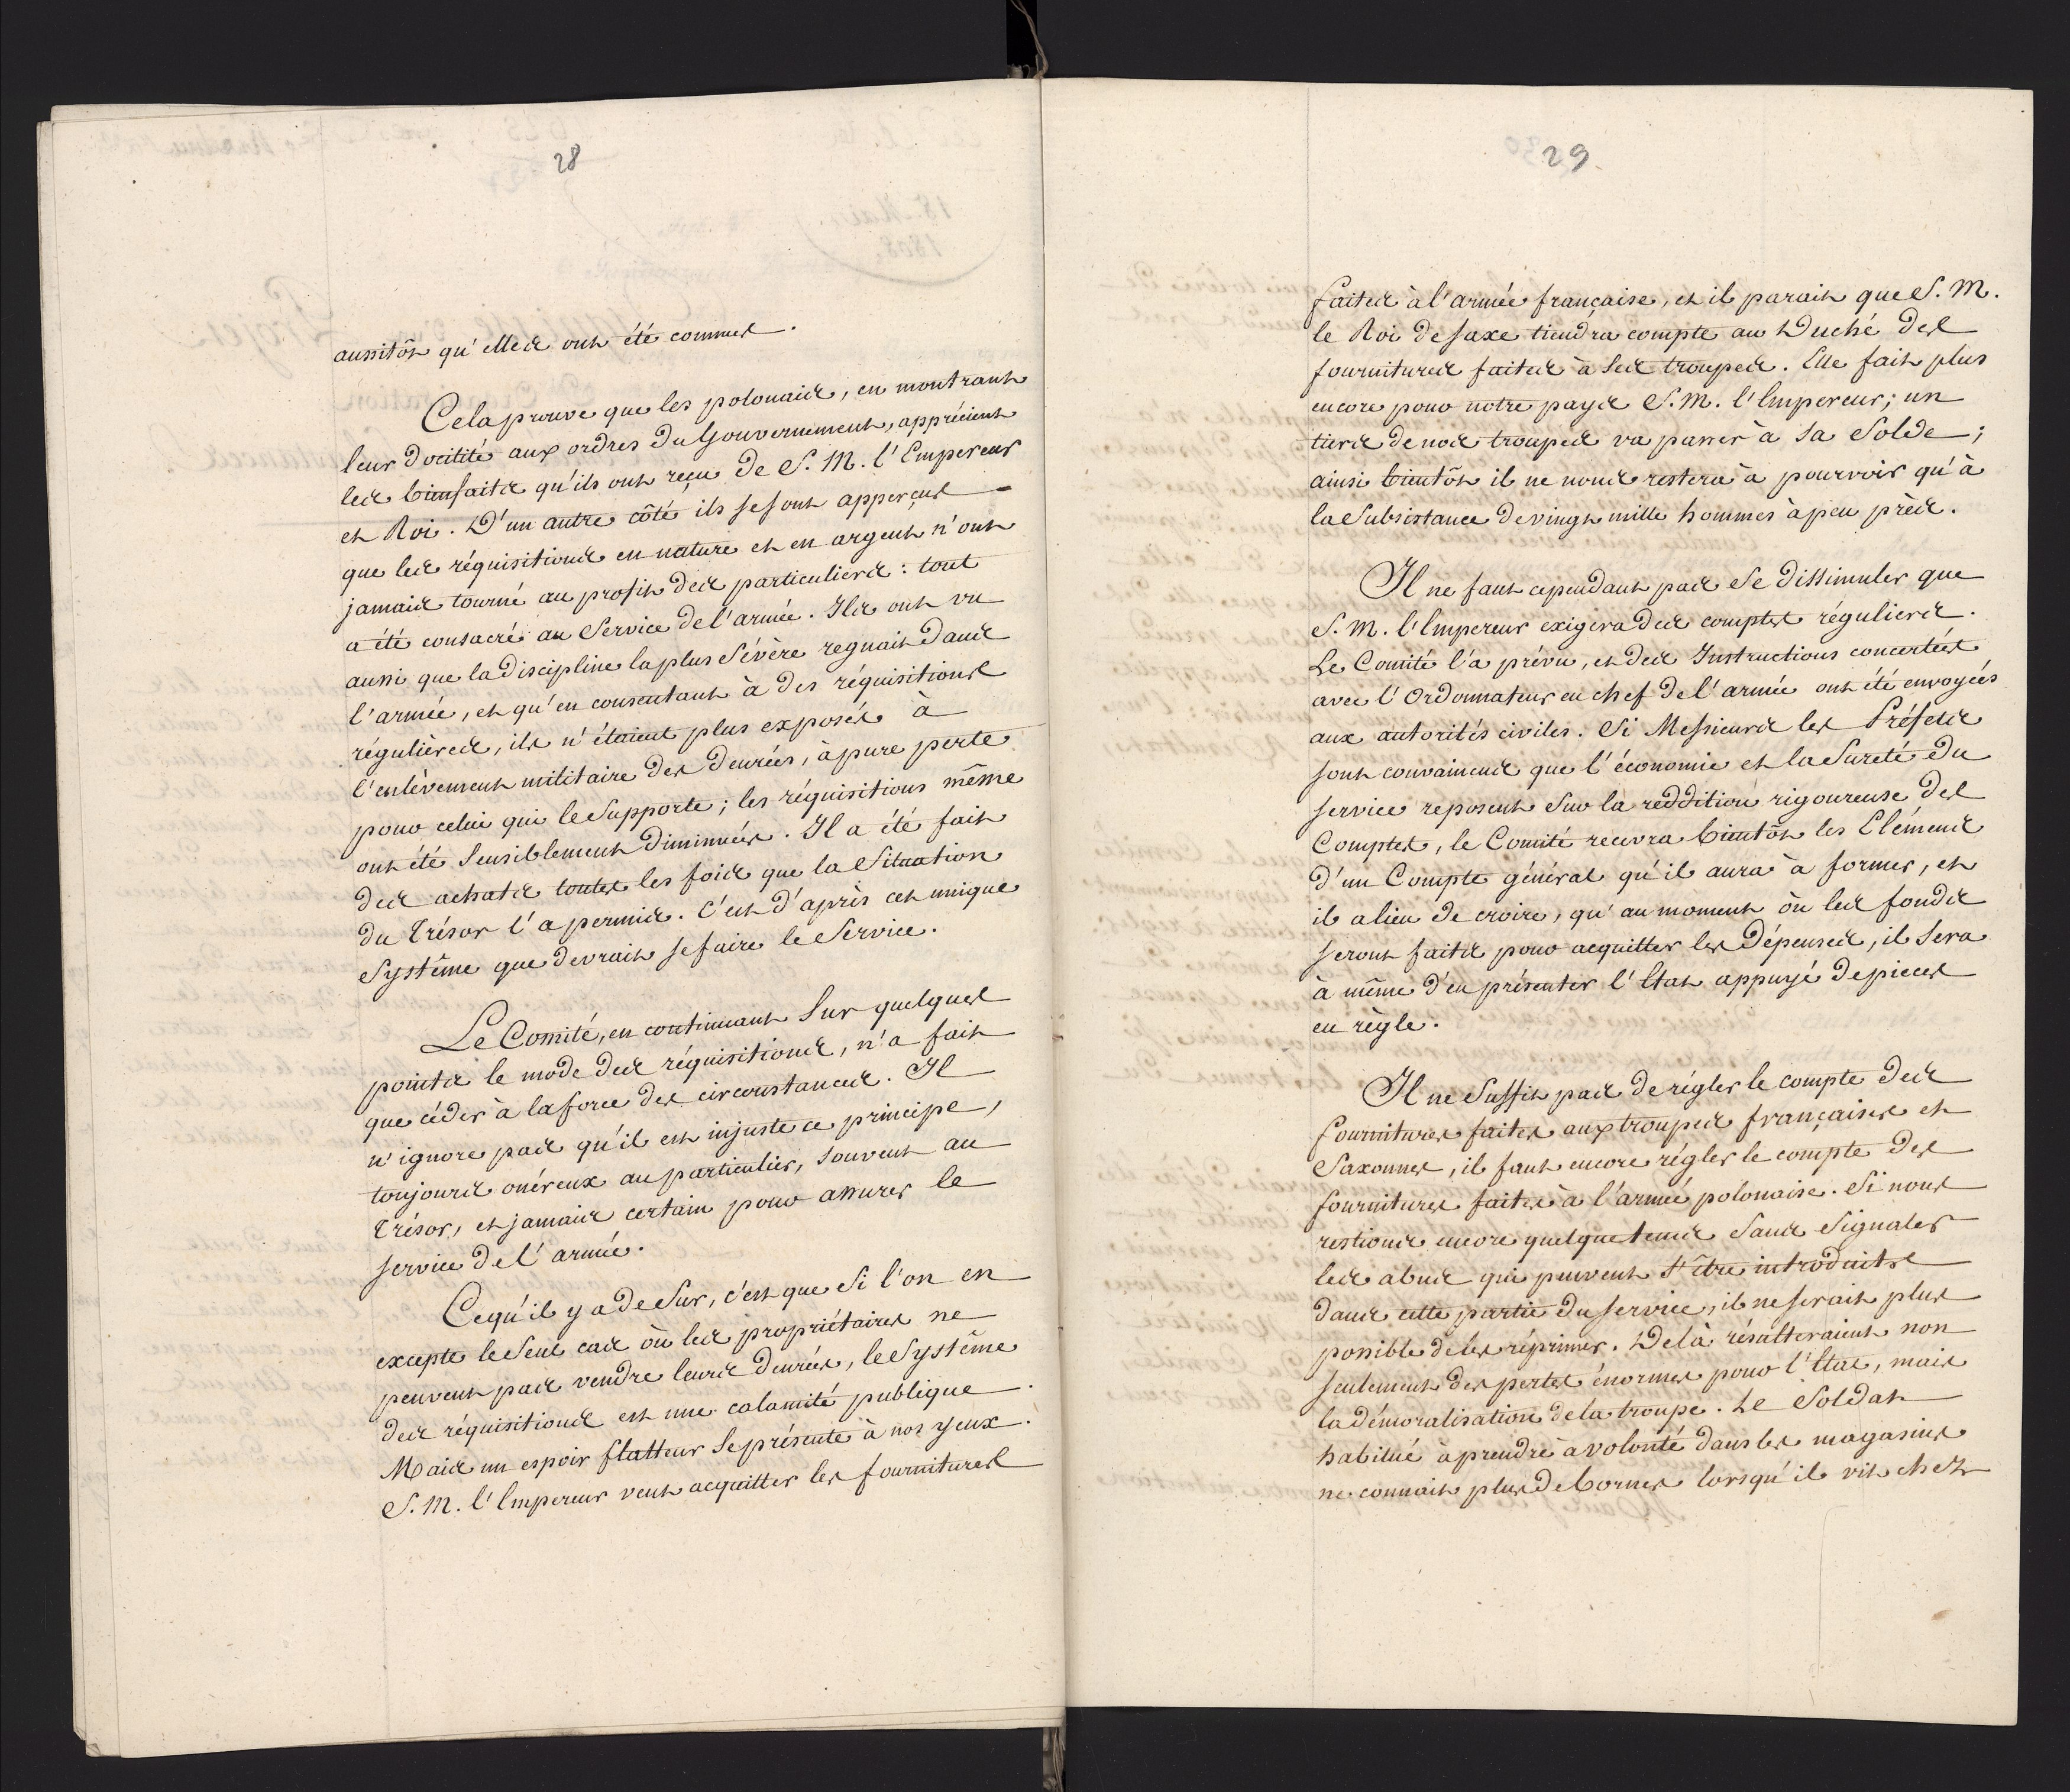 28
aussitôt qu'elles ont été connues.
Cela prouve que les polonais, en montrant
leur docilité aux ordres du Gouvernement, apprécient
les bienfaits qu'ils ont reçu de S. M. l'Empereur
et Roi. D'un autre côté ils se sont apperçus
que les réquisitions en nature et en argent n'ont
jamais tourné au profit des particuliers: tout
a été consacré au Service de l'armée. Ils ont vu
aussi que la discipline la plus Sévère regnait dans
l'armée, et qu'en consentant à des réquisitions
régulières, ils n'étaient plus exposés à
l'enlèvement militaire des denrées, à pure perte
pour celui qui le Supporte; les réquisitions même
ont été Sensiblement diminuées. Il a été fait
des achats toutes les fois que la Situation
du Trésor l'a permis. C'est d'après cet unique
Systême que devrait se faire le Service.
Le Comité, en continuant Sur quelques
points le mode des réquisitions, n'a fait
que céder à la force des circonstances. Il
n'ignore pas qu'il est injuste ce principe,
toujours onéreux au particulier, Souvent au
Trésor, et jamais certain pour assurer le
service de l'armée.
Ce qu'il y a de Sur, c'est que Si l'on en
excepte le Seul cas où les propriétaires ne
peuvent pas vendre leurs denrées, le Systême
des réquisitions est une calamité publique.
Mais un espoir flatteur Se présente à nos yeux.
S. M. l'Empereur veut acquitter les fournitures
29.
faites à l'armée française, et il parait que S. M.
le Roi de Saxe tiendra compte au Duché des
fournitures faites à Ses troupes. Elle fait plus
encore pour notre pays S. M. l'Empereur; un
tiers de nos troupes va passer à Sa Solde;
ainsi bientôt il ne nous restera à pourvoir qu'à
la Subsistance de vingt mille hommes à peu près.
Il ne faut cependant pas Se dissimuler que
S. M. l'Empereur exigera des comptes réguliers.
Le Comité l'a prévu, et des Instructions concertées
avec l'Ordonnateur en chef de l'armée ont été envoyées
aux autorités civiles. Si Messieurs les Préfets
sont convaincus que l'économie et la Sureté du
service reposent Sur la reddition rigoureuse des
Comptes, le Comité recevra bientôt les Elémens
d'un Compte général qu'il aura à former, et
il a lieu de croire, qu'au moment où les fonds
seront faits pour acquitter les Dépenses, il Sera
à même d'en présenter l'Etat appuyé de pieces
en règle.
Il ne Suffit pas de régler le compte des
fournitures faites aux troupes françaises et
Saxonnes, il faut encore régler le compte des
fournitures faites à l'armée polonaise. Si nous
restions encore quelque tems Sans Signaler
les abus qui peuvent S'être introduits
dans cette partie du Service, il ne serait plus
possible de les réprimer. Delà résulteraient non
seulement des pertes énormes pour l'Etat, mais
la démoralisation de la troupe. Le Soldat
habitué à prendre à volonté dans les magasins
ne connait plus de bornes lorsqu'il vit chez